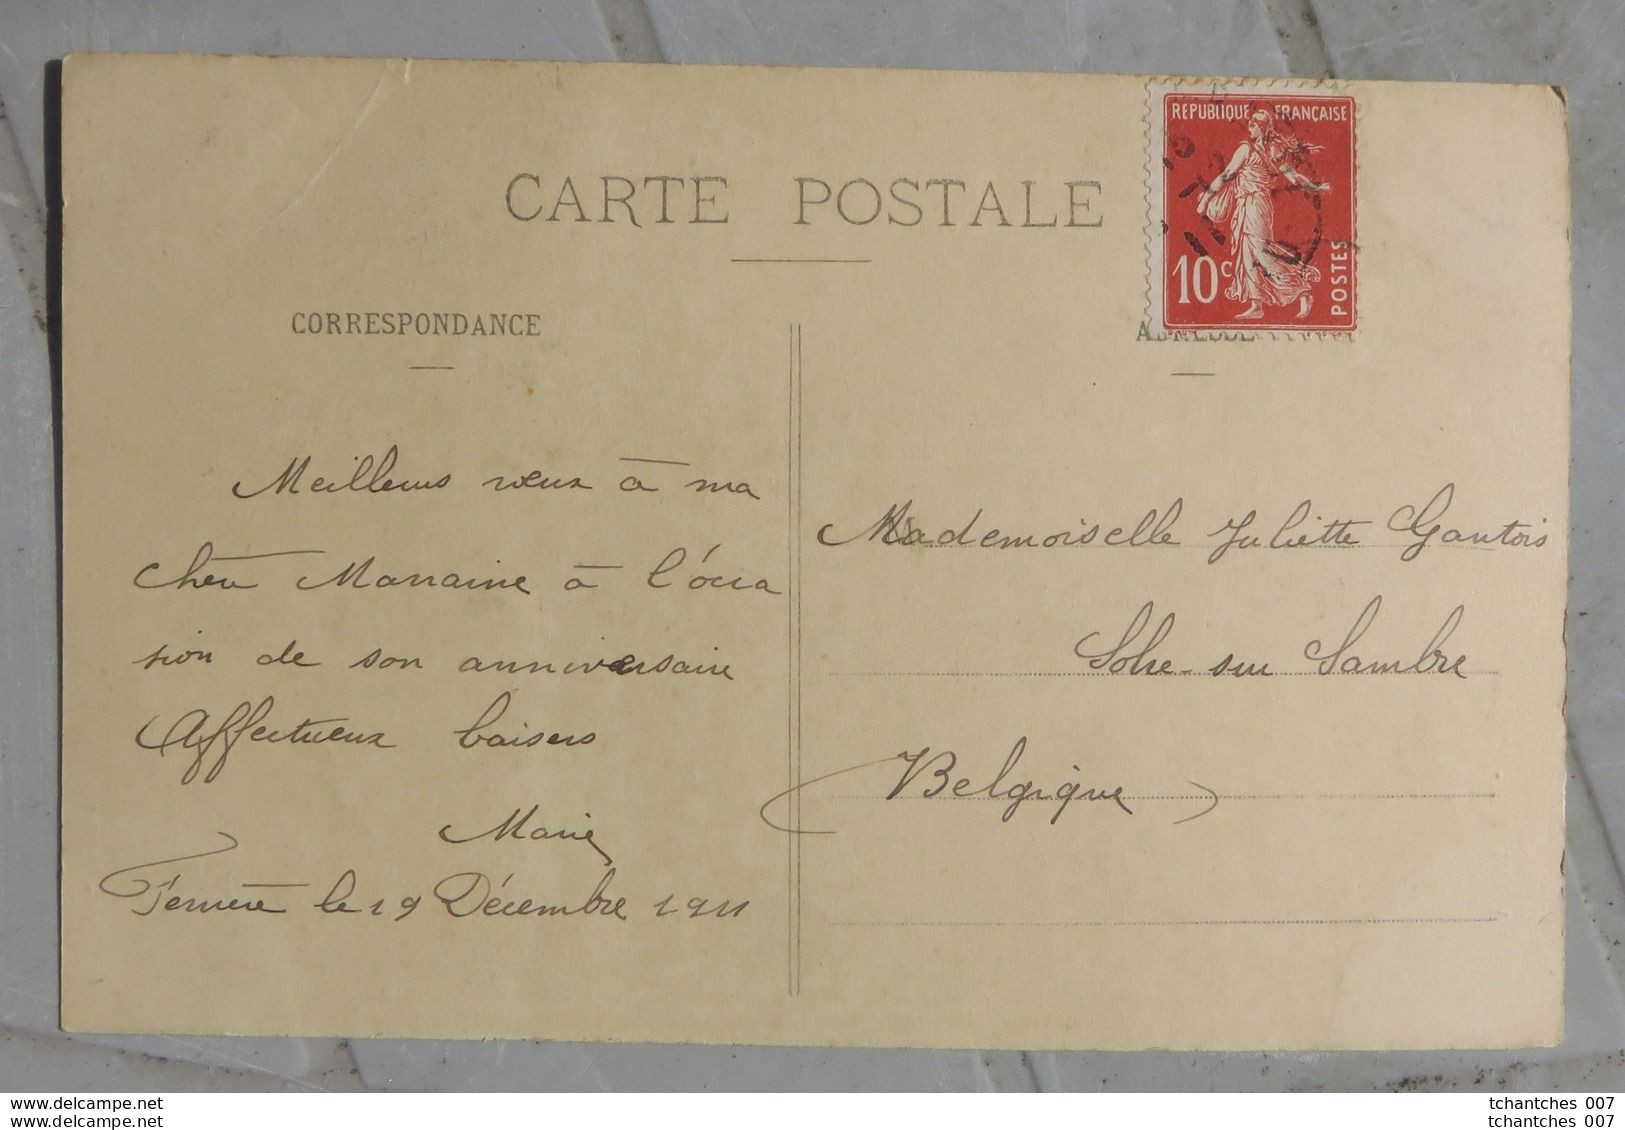 CARTE POSTALE
REPUBLIQUE FRANÇAISE
10c
POSTES
CORRESPONDANCE
Meilleurs vœux à ma
chère Marraine à l'occa
sion de son anniversaire
Affectueux baisers
Marie
Ferrière le 19 Décembre 1911
Mademoiselle Juliette Gantois
Solre-sur Sambre
Belgique
www.delcampe.net
tchantches 007
www.delcampe.net
tchantches 007